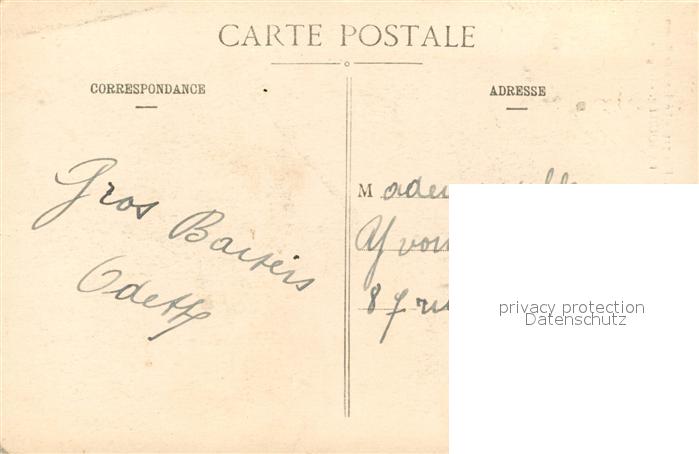 CARTE POSTALE
CORRESPONDANCE
ADRESSE
Gros Baisers
Odette
M
87
privacy protection
Datenschutz